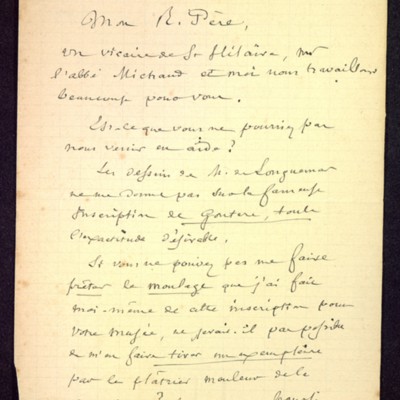 Mon R. Père,
un vicaire de St Hilaire, mr
l'abbé Michaud et moi nous travaillons
beaucoup pour vous.
Est-ce que vous ne pourriez pas
nous venir en aide?
Les dessin de M. de Longuemar
ne me donne pas sur la fameuse
Inscription de Gontere, toute
l'exactitude désirable.
Si vous ne pouvez pas me faire
prêter le moulage que j'ai fait
moi-même de cette inscription pour
votre musée, ne serait-il pas possible
de m'en faire tirer un exemplaire
par le plâtrier mouleur de la